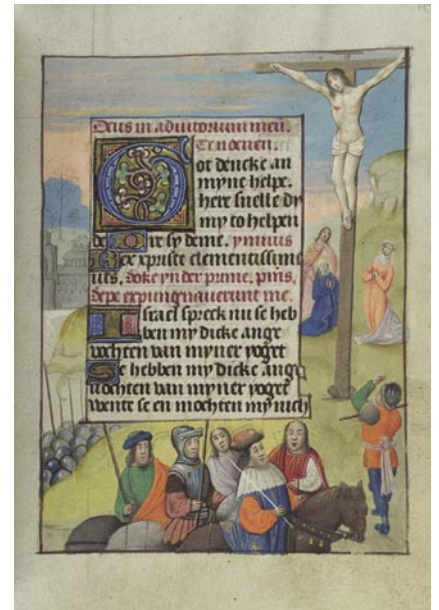 Deus in adiutorium meu.
Te noenen.
Got dencke an
myne helpe.
here snelle dy
my to helpen
de Eere sy deme. ymnus
Rex xpriste clementissime
uts. doke ynder prime. pms.
Sepe expungnauerunt me.
Israel spreck nu se heb
ben my dicke ange
vochten van myner yoget
Se hebben my dicke ange
uochten van myner yoget
wente se en mochten my nich